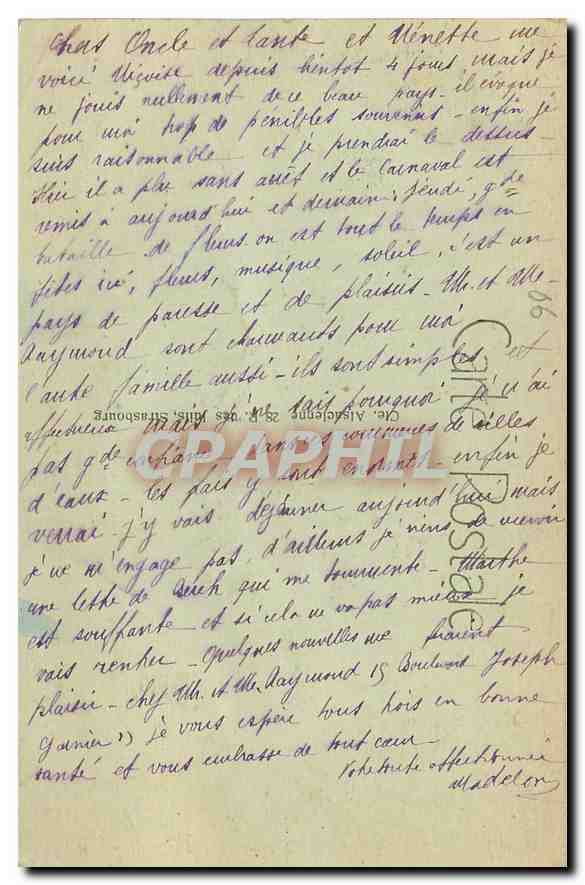 Chers Oncle et Tante et Vénette me
voici Niçoise depuis bientôt 4 jours mais je
ne jouis nullement de ce beau pays - il évoque
pour moi trop de pénibles souvenirs - enfin je
suis raisonnable et je prendrai le dessus -
Hier il a plu sans arrêt et le Carnaval est
remis à aujourd'hui et demain, jeudi, gde
bataille de fleurs. on est tout le temps en
fêtes ici, fleurs, musique, soleil, c'est un
pays de paresse et de plaisirs - Mr. et Me.
Raymond sont charmants pour moi
l'autre famille aussi - ils sont simples et
affectueux mais je ne sais pourquoi je n'ai
pas gde confiance - de villes
d'eaux - les frais y sont énormes - enfin je
verrai j'y vais déjeuner aujourd'hui mais
je ne m'engage pas, d'ailleurs je viens de recevoir
une lettre de qui me tourmente - Marthe
est souffrante et si cela ne va pas mieux je
vais rentrer - Quelques nouvelles me feraient
plaisir - chez Mr. et Me. Raymond 15 Boulevard Joseph
Garnier) je vous espère tous trois en bonne
santé et vous embrasse de tout coeur
Votre toute affectionnée
Madelon
06
Carte Postale
Cie. Alsacienne 28, R. des Juifs, Strasbourg
CPAPHIL